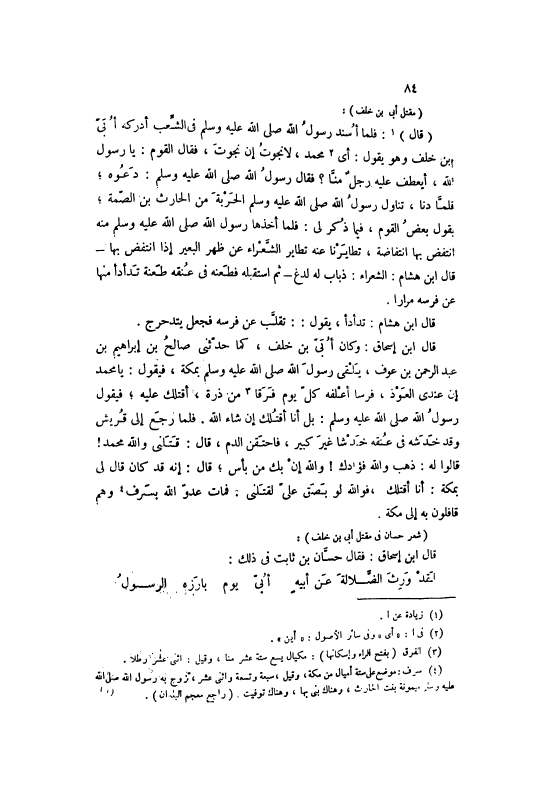 ٨٤
( مقتل أبي بن خلف ) :
( قال ) ١ : فلما أُسند رسولُ الله صلى الله عليه وسلم فى الشِّعب أدركه أُبَىّ
ابن خلف وهو يقول : أى ٢ محمد ، لانجوتُ إن نجوتَ ، فقال القوم : يا رسول
الله ، أيعطف عليه رجلٌ منَّا ؟ فقال رسولُ الله صلى الله عليه وسلم : دَعُوه ؛
فلمَّا دنا ، تناول رسولُ الله صلى الله عليه وسلم الحَرْبةَ من الحارث بن الصِّمة ؛
يقول بعضُ القوم ، فيما ذُكر لى : فلما أخذها رسول الله صلى الله عليه وسلم منه
انتفض بها انتفاضة ، تطايَرْنا عنه تطاير الشَّعْراء عن ظهر البعير إذا انتفض بها —
قال ابن هشام : الشعراء : ذباب له لدغ — ثم استقبله فطعنه فى عنُقه طَعنة تَدأدأ منها
عن فرسه مرارا .
قال ابن هشام : تدأدأ ، يقول : : تقلَّب عن فرسه فجعل يتدحرج .
قال ابن إسحاق : وكان أُبَىّ بن خلف ، كما حدّثنى صالحُ بن إبراهيم بن
عبد الرحمن بن عوف ، يَلْقى رسولَ الله صلى الله عليه وسلم بمكة ، فيقول : يامحمد
إن عندى العَوْذ ، فرسا أعْلفه كلّ يوم فَرَقا ٣ من ذرة ، أقتلك عليه ؛ فيقول
رسولُ الله صلى الله عليه وسلم : بل أنا أقتُلك إن شاء الله . فلما رجَع إلى قُريش
وقد خَدَشه فى عنُقه خَدْشا غيرَ كبير ، فاحتقن الدم ، قال : قَتَلنى والله محمد!
قالوا له : ذهب والله فؤادك ! والله إنْ بك من بأس ؛ قال : إنه قد كان قال لى
بمكة : أنا أقتلك ، فوالله لو بَصَق علىّ لقتلنى ؛ فمات عدوّ الله بسَرف ٤ وهم
قافلون به إلى مكة .
( شعر حسان فى مقتل أبي بن خلف ) :
قال ابن إسحاق : فقال حسَّان بن ثابت فى ذلك :
لقدْ وَرِثَ الضَّلالةَ عَن أبيهِ أُبَىّ يوم بارَزه الرسولُ
(١) زيادة عن ا .
(٢) فى ا : « أى » وفى سائر الأصول : « أين » .
(٣) الفرق ( بفتح الراء وإسكانها ) : مكيال يسع ستة عشر منا ، وقيل : اثنى عشر رطلا .
(٤) سرف : موضع على ستة أميال من مكة ، وقيل ، سبعة وتسعة واثنى عشر ، تزوج به رسول الله صلى الله
عليه وسلم ميمونة بنت الحارث ، وهناك بنى بها ، وهناك توفيت . ( راجع معجم البلدان ) .